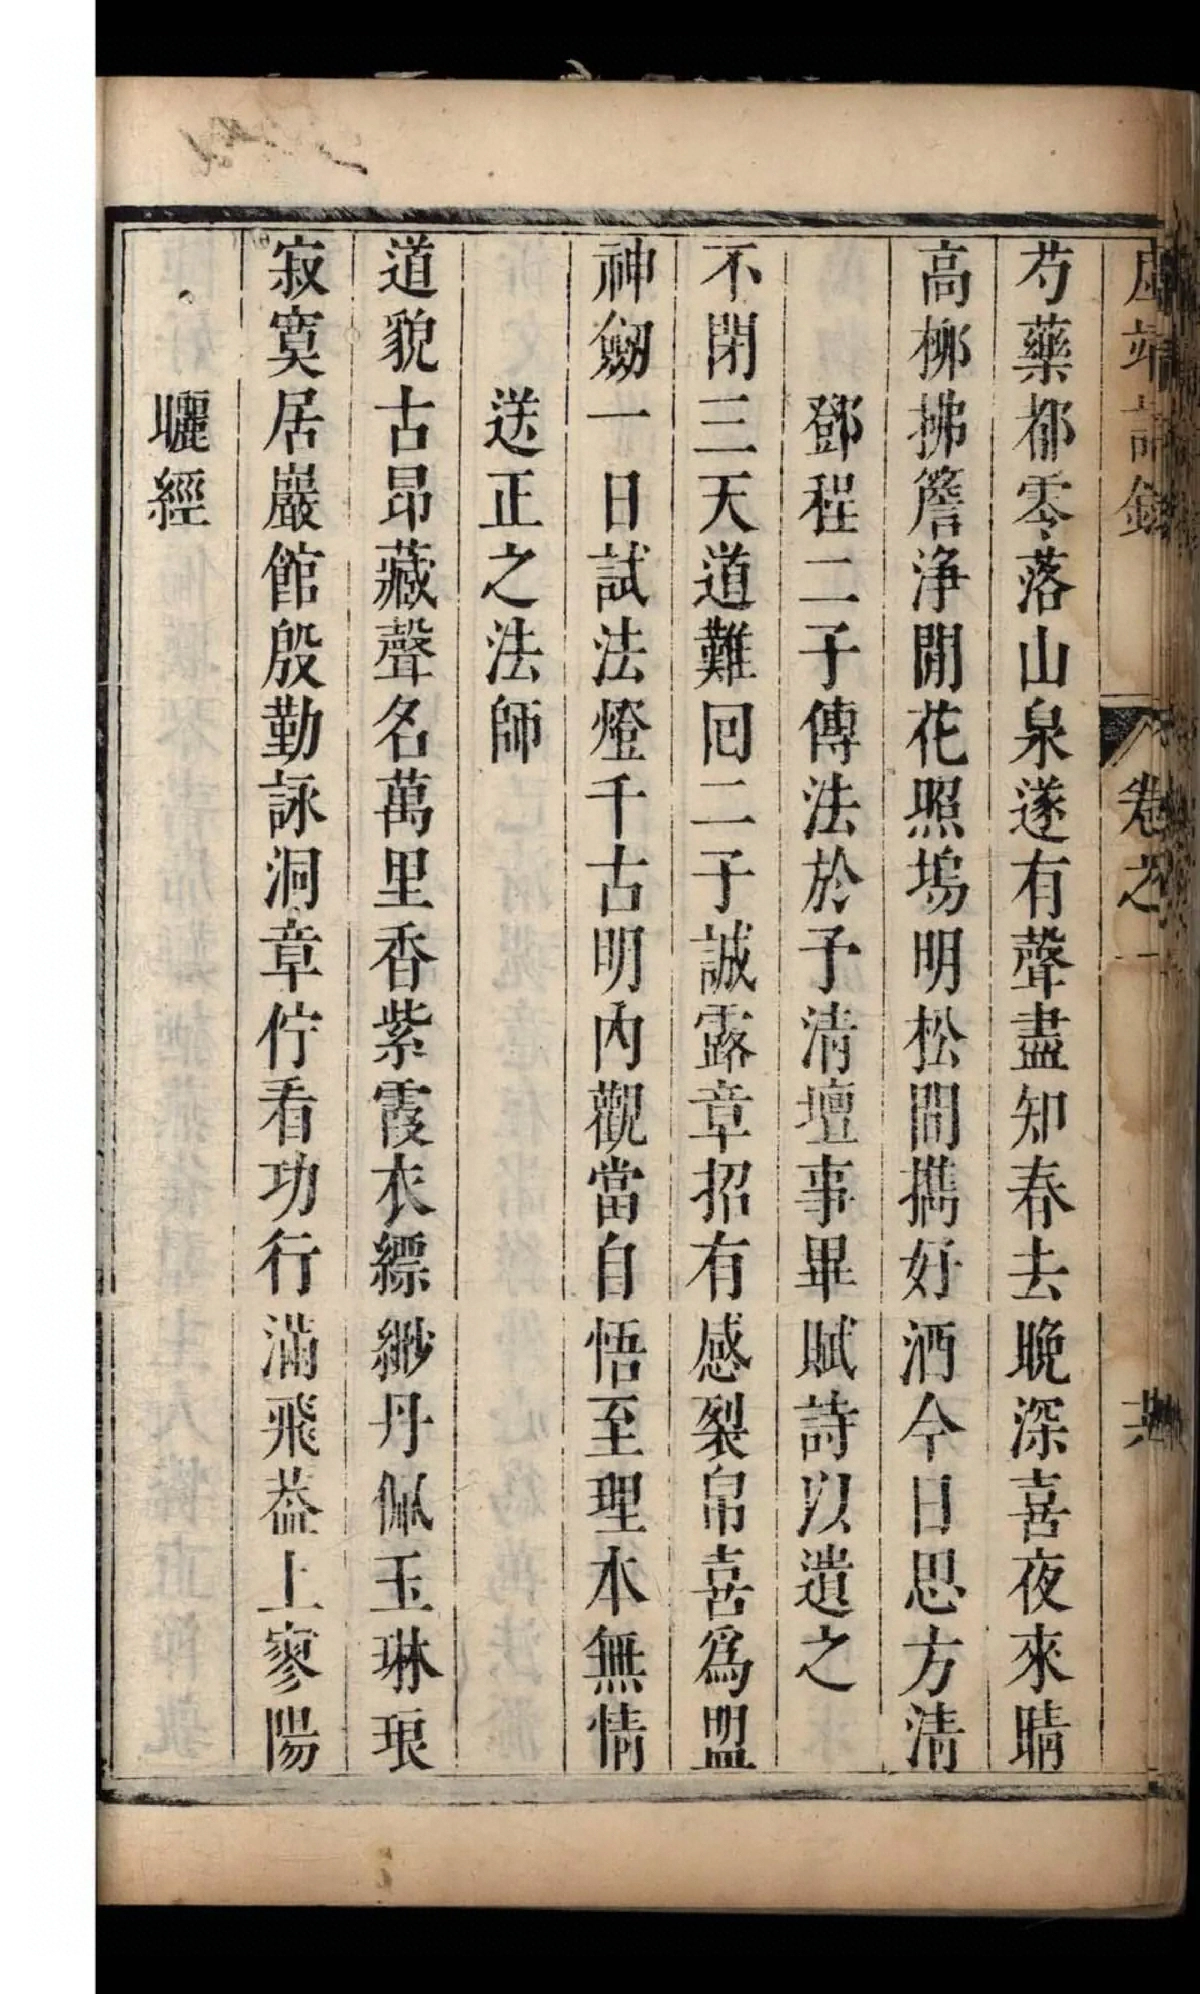 芍藥都零落山泉遂有聲盡知春去晚深喜夜來晴
高柳拂簷淨閒花照塢明松間擕好酒今日思方清
鄧程二子傳法於予清壇事畢賦詩以遺之
不閉三天道難回二子誠露章招有感裂帛喜爲盟
神劒一日試法燈千古明內觀當自悟至理本無情
送正之法師
道貌古昂藏聲名萬里香紫霞衣縹緲丹佩玉琳琅
寂寞居巖館殷勤詠洞章佇看功行滿飛葢上寥陽
曬經
卷之一